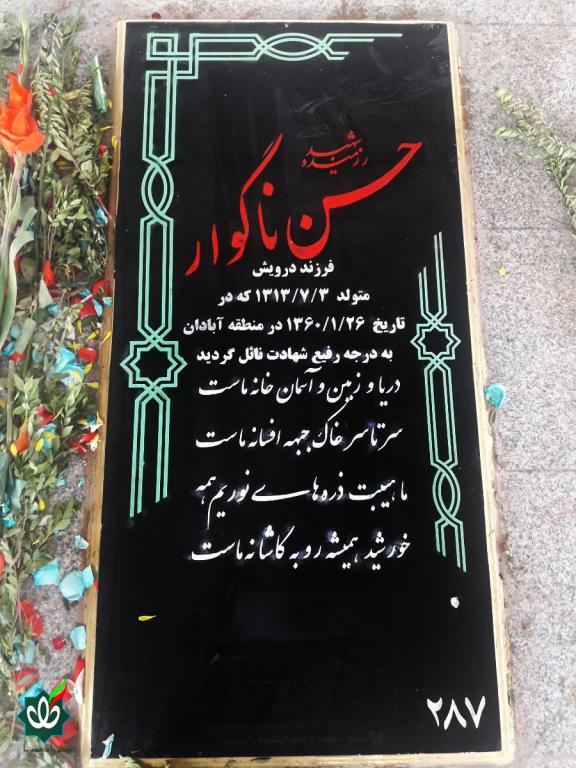 رزمنده شهید
حسن ناگوار
فرزند درویش
متولد ۱۳۱۳/۷/۳ که در
تاریخ ۱۳۶۰/۱/۲۶ در منطقه آبادان
به درجه رفیع شهادت نائل گردید
دریا و زمین و آسمان خانه ماست
سرتاسر خاک جبهه افسانه ماست
ما هیبت ذره های نوریم همه
خورشید همیشه رو به کاشانه ماست
۲۸۷